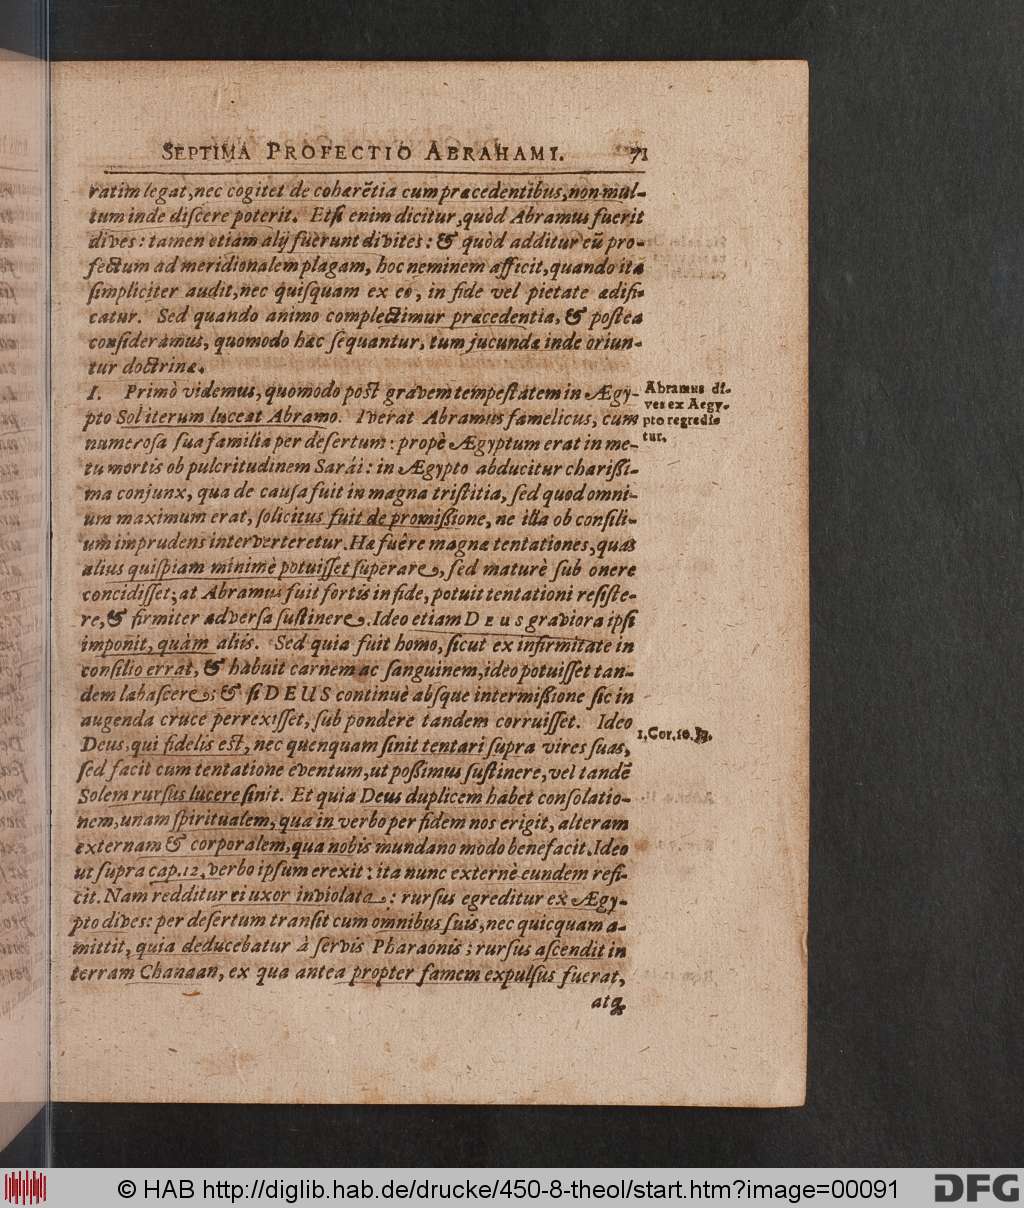 SEPTIMA PROFECTIO ABRAHAMI. 71
ratim legat, nec cogitet de cohærẽtia cum præcedentibus, non mul-
tum inde diſcere poterit. Etſi enim dicitur, quòd Abramus fuerit
dives: tamen etiam alij fuerunt divites: & quòd additur eũ pro-
fectum ad meridionalem plagam, hoc neminem afficit, quando ita
ſimpliciter audit, nec quiſquam ex eo, in fide vel pietate ædifi-
catur. Sed quando animo complectimur præcedentia, & poſtea
conſideramus, quomodo hæc ſequantur, tum jucundæ inde oriun-
tur doctrinæ.
I. Primò videmus, quomodo poſt gravem tempeſtatem in Ægy-
pto Sol iterum luceat Abramo. Iverat Abramus famelicus, cum
numeroſa ſua familia per deſertum: propè Ægyptum erat in me-
tu mortis ob pulcritudinem Sarái: in Ægypto abducitur chariſſi-
ma conjunx, qua de cauſa fuit in magna triſtitia, ſed quod omni-
um maximum erat, ſolicitus fuit de promiſſione, ne illa ob conſili-
um imprudens interverteretur. Hæ fuêre magnæ tentationes, quas
alius quiſpiam minimè potuiſſet ſuperare, ſed maturè ſub onere
concidiſſet; at Abramus fuit fortis in fide, potuit tentationi reſiſte-
re, & firmiter adverſa ſuſtinere. Ideo etiam DEUS graviora ipſi
imponit, quàm aliis. Sed quia fuit homo, ſicut ex infirmitate in
conſilio errat, & habuit carnem ac ſanguinem, ideo potuiſſet tan-
dem labaſcere; & ſi DEUS continuè abſque intermiſſione ſic in
augenda cruce perrexiſſet, ſub pondere tandem corruiſſet. Ideo
Deus, qui fidelis eſt, nec quenquam ſinit tentari ſupra vires ſuas,
ſed facit cum tentatione eventum, ut poſſimus ſuſtinere, vel tandẽ
Solem rurſus lucere ſinit. Et quia Deus duplicem habet conſolatio-
nem, unam ſpiritualem, qua in verbo per fidem nos erigit, alteram
externam & corporalem, qua nobis mundano modo benefacit. Ideo
ut ſupra cap. 12. verbo ipſum erexit: ita nunc externè eundem refi-
cit. Nam redditur ei uxor inviolata: rurſus egreditur ex Ægy-
pto dives: per deſertum tranſit cum omnibus ſuis, nec quicquam a-
mittit, quia deducebatur à ſervis Pharaonis; rurſus aſcendit in
terram Chanaan, ex qua antea propter famem expulſus fuerat,
atq;
Abramus di-
ves ex Aegy-
pto regredi-
tur.
1. Cor. 10. 13.
© HAB http://diglib.hab.de/drucke/450-8-theol/start.htm?image=00091
DFG